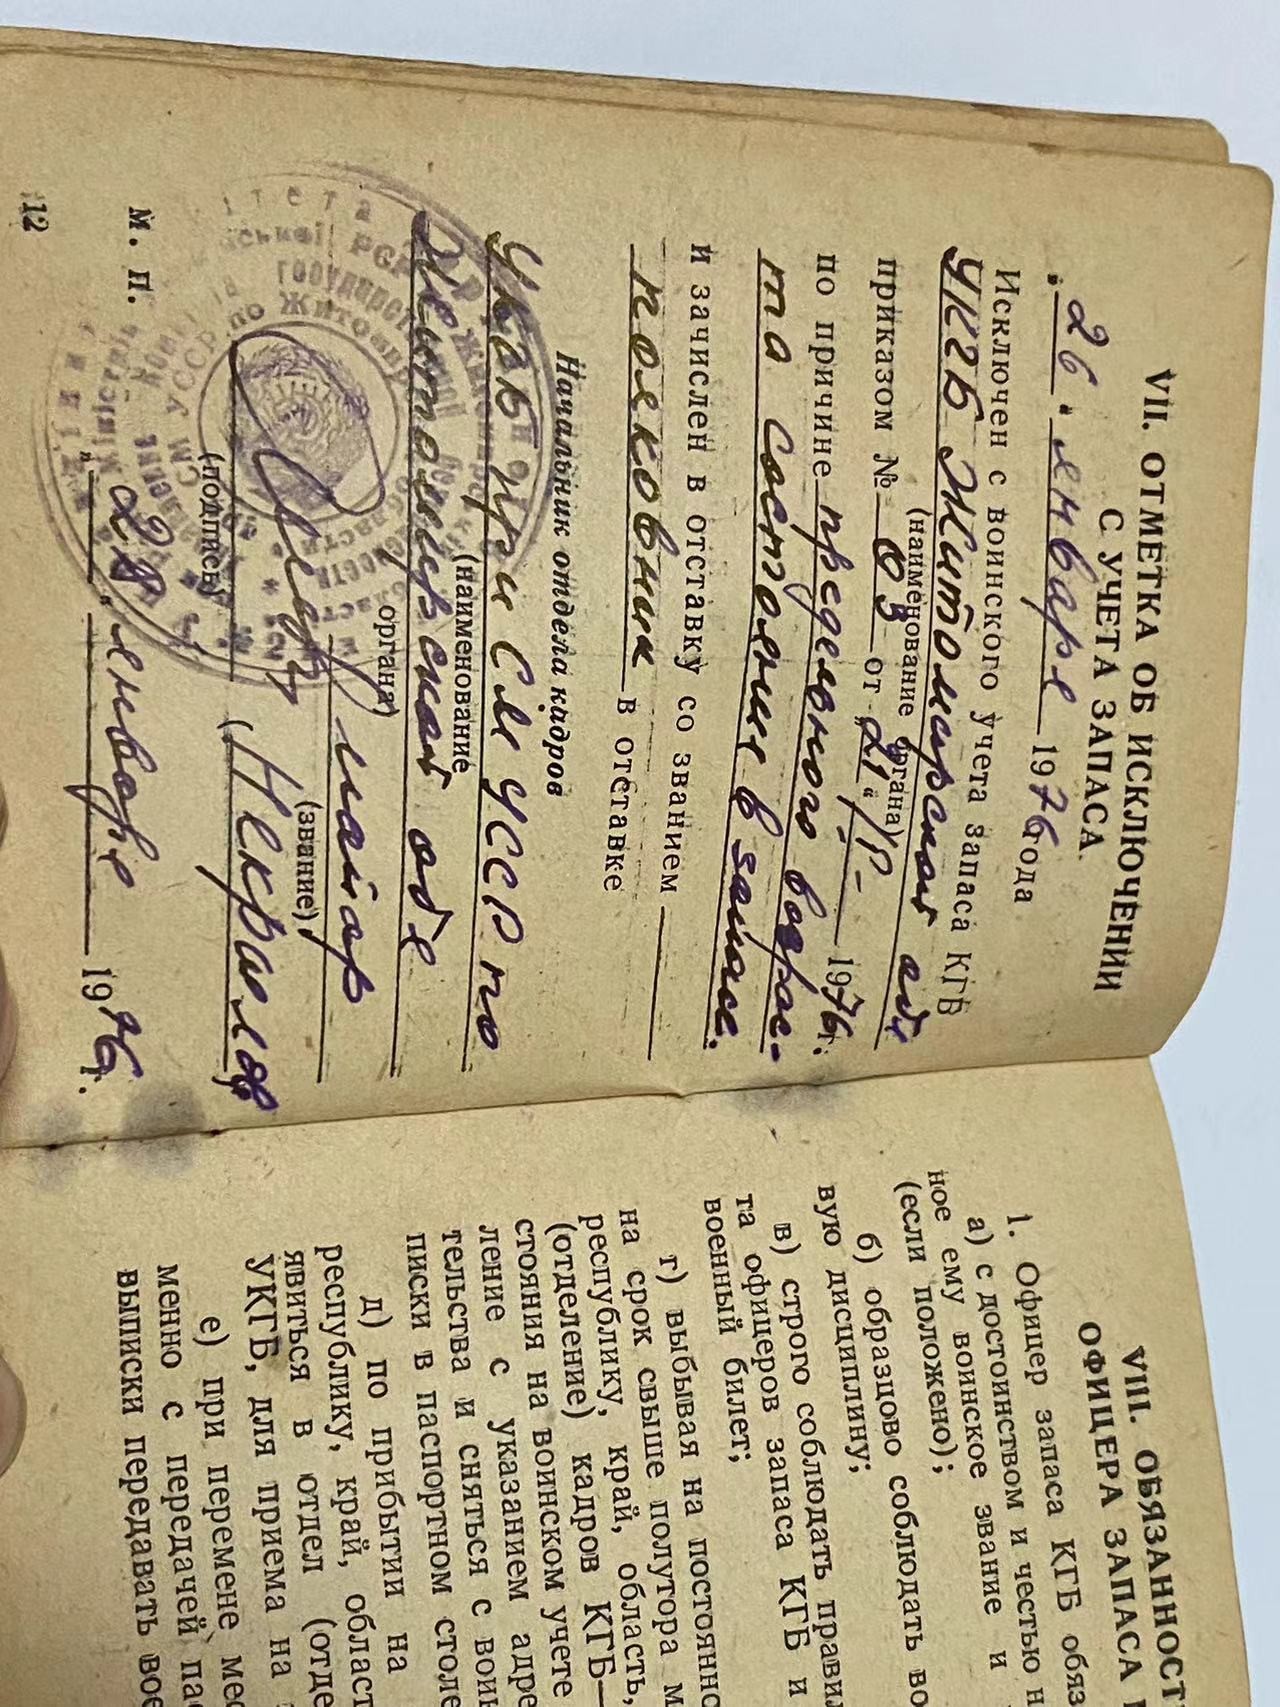 VII. ОТМЕТКА ОБ ИСКЛЮЧЕНИИ
С УЧЕТА ЗАПАСА
"26" января 1976 года
Исключен с воинского учета запаса КГБ
УКГБ Житомирской обл
(наименование органа)
приказом № 03 от "21" 1976 г.
по причине предельного возрас-
та состояния в запасе.
и зачислен в отставку со званием
полковник в отставке
Начальник отдела кадров
УКГБ при СМ УССР по
(наименование
Житомирской обл
органа)
майор
(звание)
(Некрасов)
(подпись)
М. П. "28" января 1976 г.
12
VIII. ОБЯЗАННОСТ
ОФИЦЕРА ЗАПАСА
1. Офицер запаса КГБ обяз
а) с достоинством и честью н
ное ему воинское звание и
(если положено);
б) образцово соблюдать во
вую дисциплину;
в) строго соблюдать правил
та офицеров запаса КГБ и
военный билет;
г) выбывая на постоянно
на срок свыше полутора м
республику, край, область,
(отделение) кадров КГБ—
стояния на воинском учете
ление с указанием адре
тельства и сняться с воин
писки в паспортном столе
д) по прибытии на
республику, край, област
явиться в отдел (отде
УКГБ, для приема на
е) при перемене мес
менно с передачей пас
выписки передавать вое